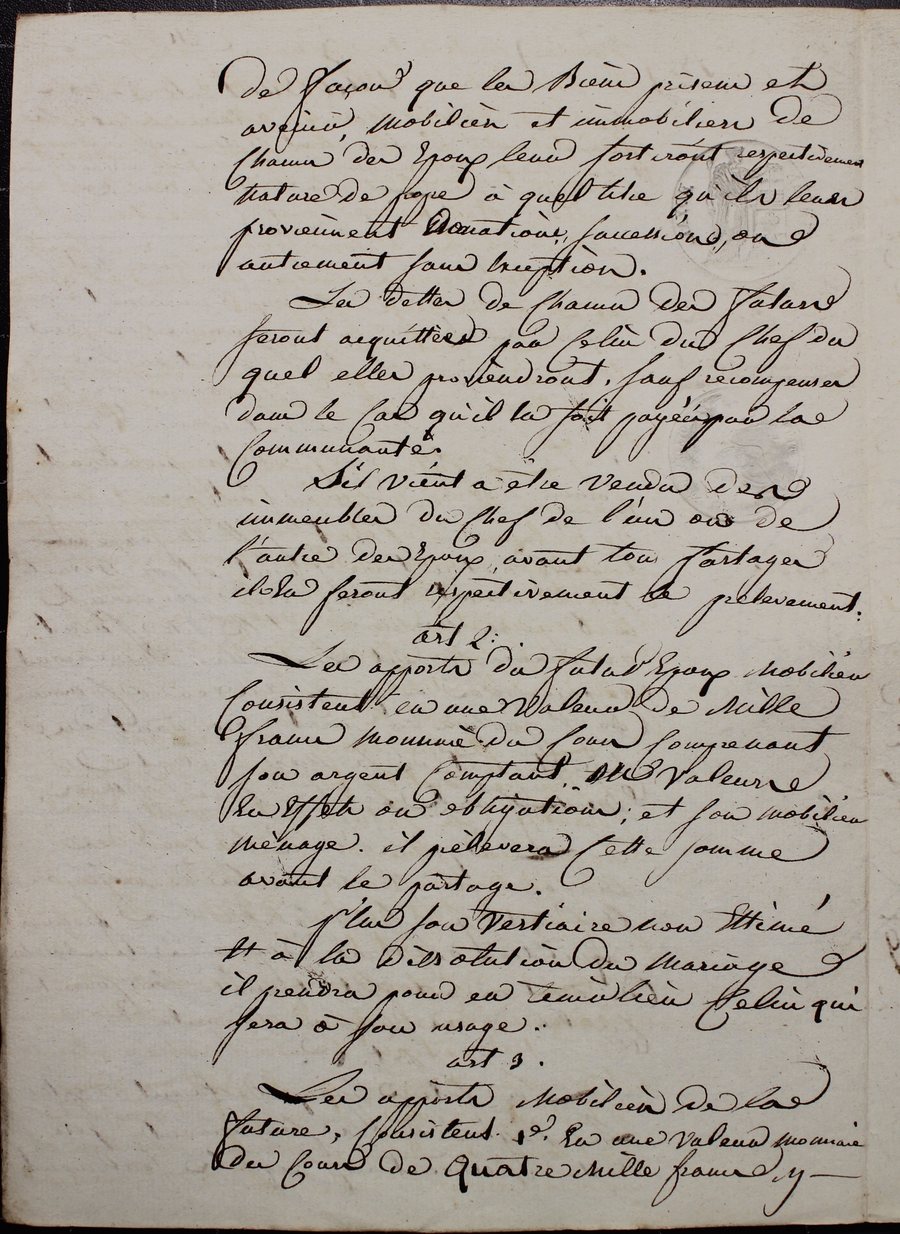 de façon que les Biens présens et
avenir, mobiliers et immobiliers de
Chacun des Epoux leur sortiront respectivement
nature de propre à quel titre qu'ils leurs
proviennent Donations, successions, ou
autrement sans exception.
Les dettes de Chacun des futurs
seront acquittées par Celui du Chef du
quel elles proviendront, sauf récompenses
dans le Cas qu'il en soit payées par la
Communauté.
S'il vient à être vendu des
immeubles du Chef de l'un ou de
l'autre des Epoux, avant tous Partages
ils en feront respectivement le prelevement.
art 2.
Les apports du futur Epoux mobiliers
Consistent en une Valeur de Mille
francs monnaie du Cours Comprenant
son argent Comptant, Valeurs
En Effets ou obligations, et son mobilier
ménage. il prèlevera Cette somme
avant le partage.
plus son Vestiaire non Estimé
Et à la dissolution du Mariage
il prendra pour en tenir lieu Celui qui
sera à son usage.
art 3.
Les apports Mobiliers de la
future, Consistent 1º. En une Valeur monnaie
du Cours de Quatre Mille francs y